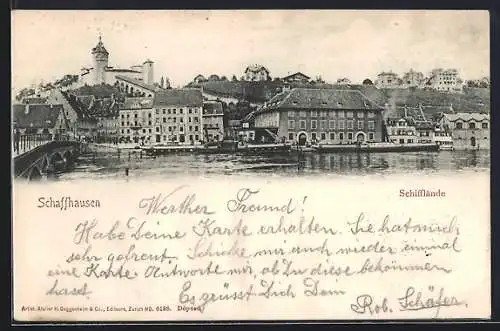 Schaffhausen
Schifflände
Werther Freund!
Habe Deine Karte erhalten. Sie hat mich
sehr gefreut. Schicke mir auch wieder einmal
eine Karte. Antworte mir, ob Du diese bekommen
hast.
Es grüsst Dich Dein
Rob. Schäfer.
Artist. Atelier H. Guggenheim & Co., Editeurs, Zürich No. 6185. Déposé